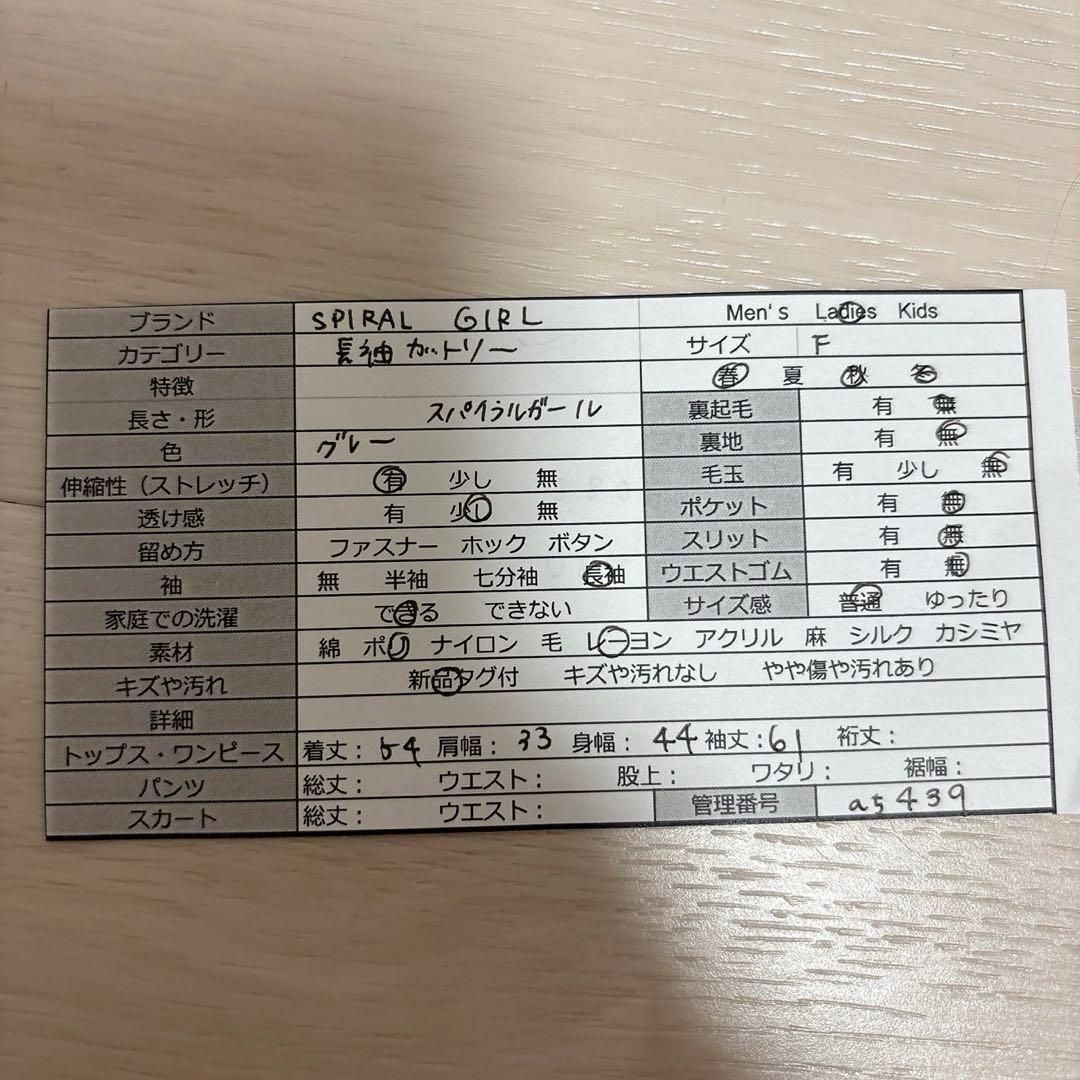 ブランド SPIRAL GIRL Men's Ladies Kids
カテゴリー 長袖カットソー サイズ F
特徴 春 夏 秋 冬
長さ・形 スパイラルガール 裏起毛 有 無
色 グレー 裏地 有 無
伸縮性（ストレッチ） 有 少し 無 毛玉 有 少し 無
透け感 有 少し 無 ポケット 有 無
留め方 ファスナー ホック ボタン スリット 有 無
袖 無 半袖 七分袖 長袖 ウエストゴム 有 無
家庭での洗濯 できる できない サイズ感 普通 ゆったり
素材 綿 ポリ ナイロン 毛 レーヨン アクリル 麻 シルク カシミヤ
キズや汚れ 新品タグ付 キズや汚れなし やや傷や汚れあり
詳細
トップス・ワンピース 着丈：54 肩幅：33 身幅：44 袖丈：61 裄丈：
パンツ 総丈： ウエスト： 股上： ワタリ： 裾幅：
スカート 総丈： ウエスト： 管理番号 a5439